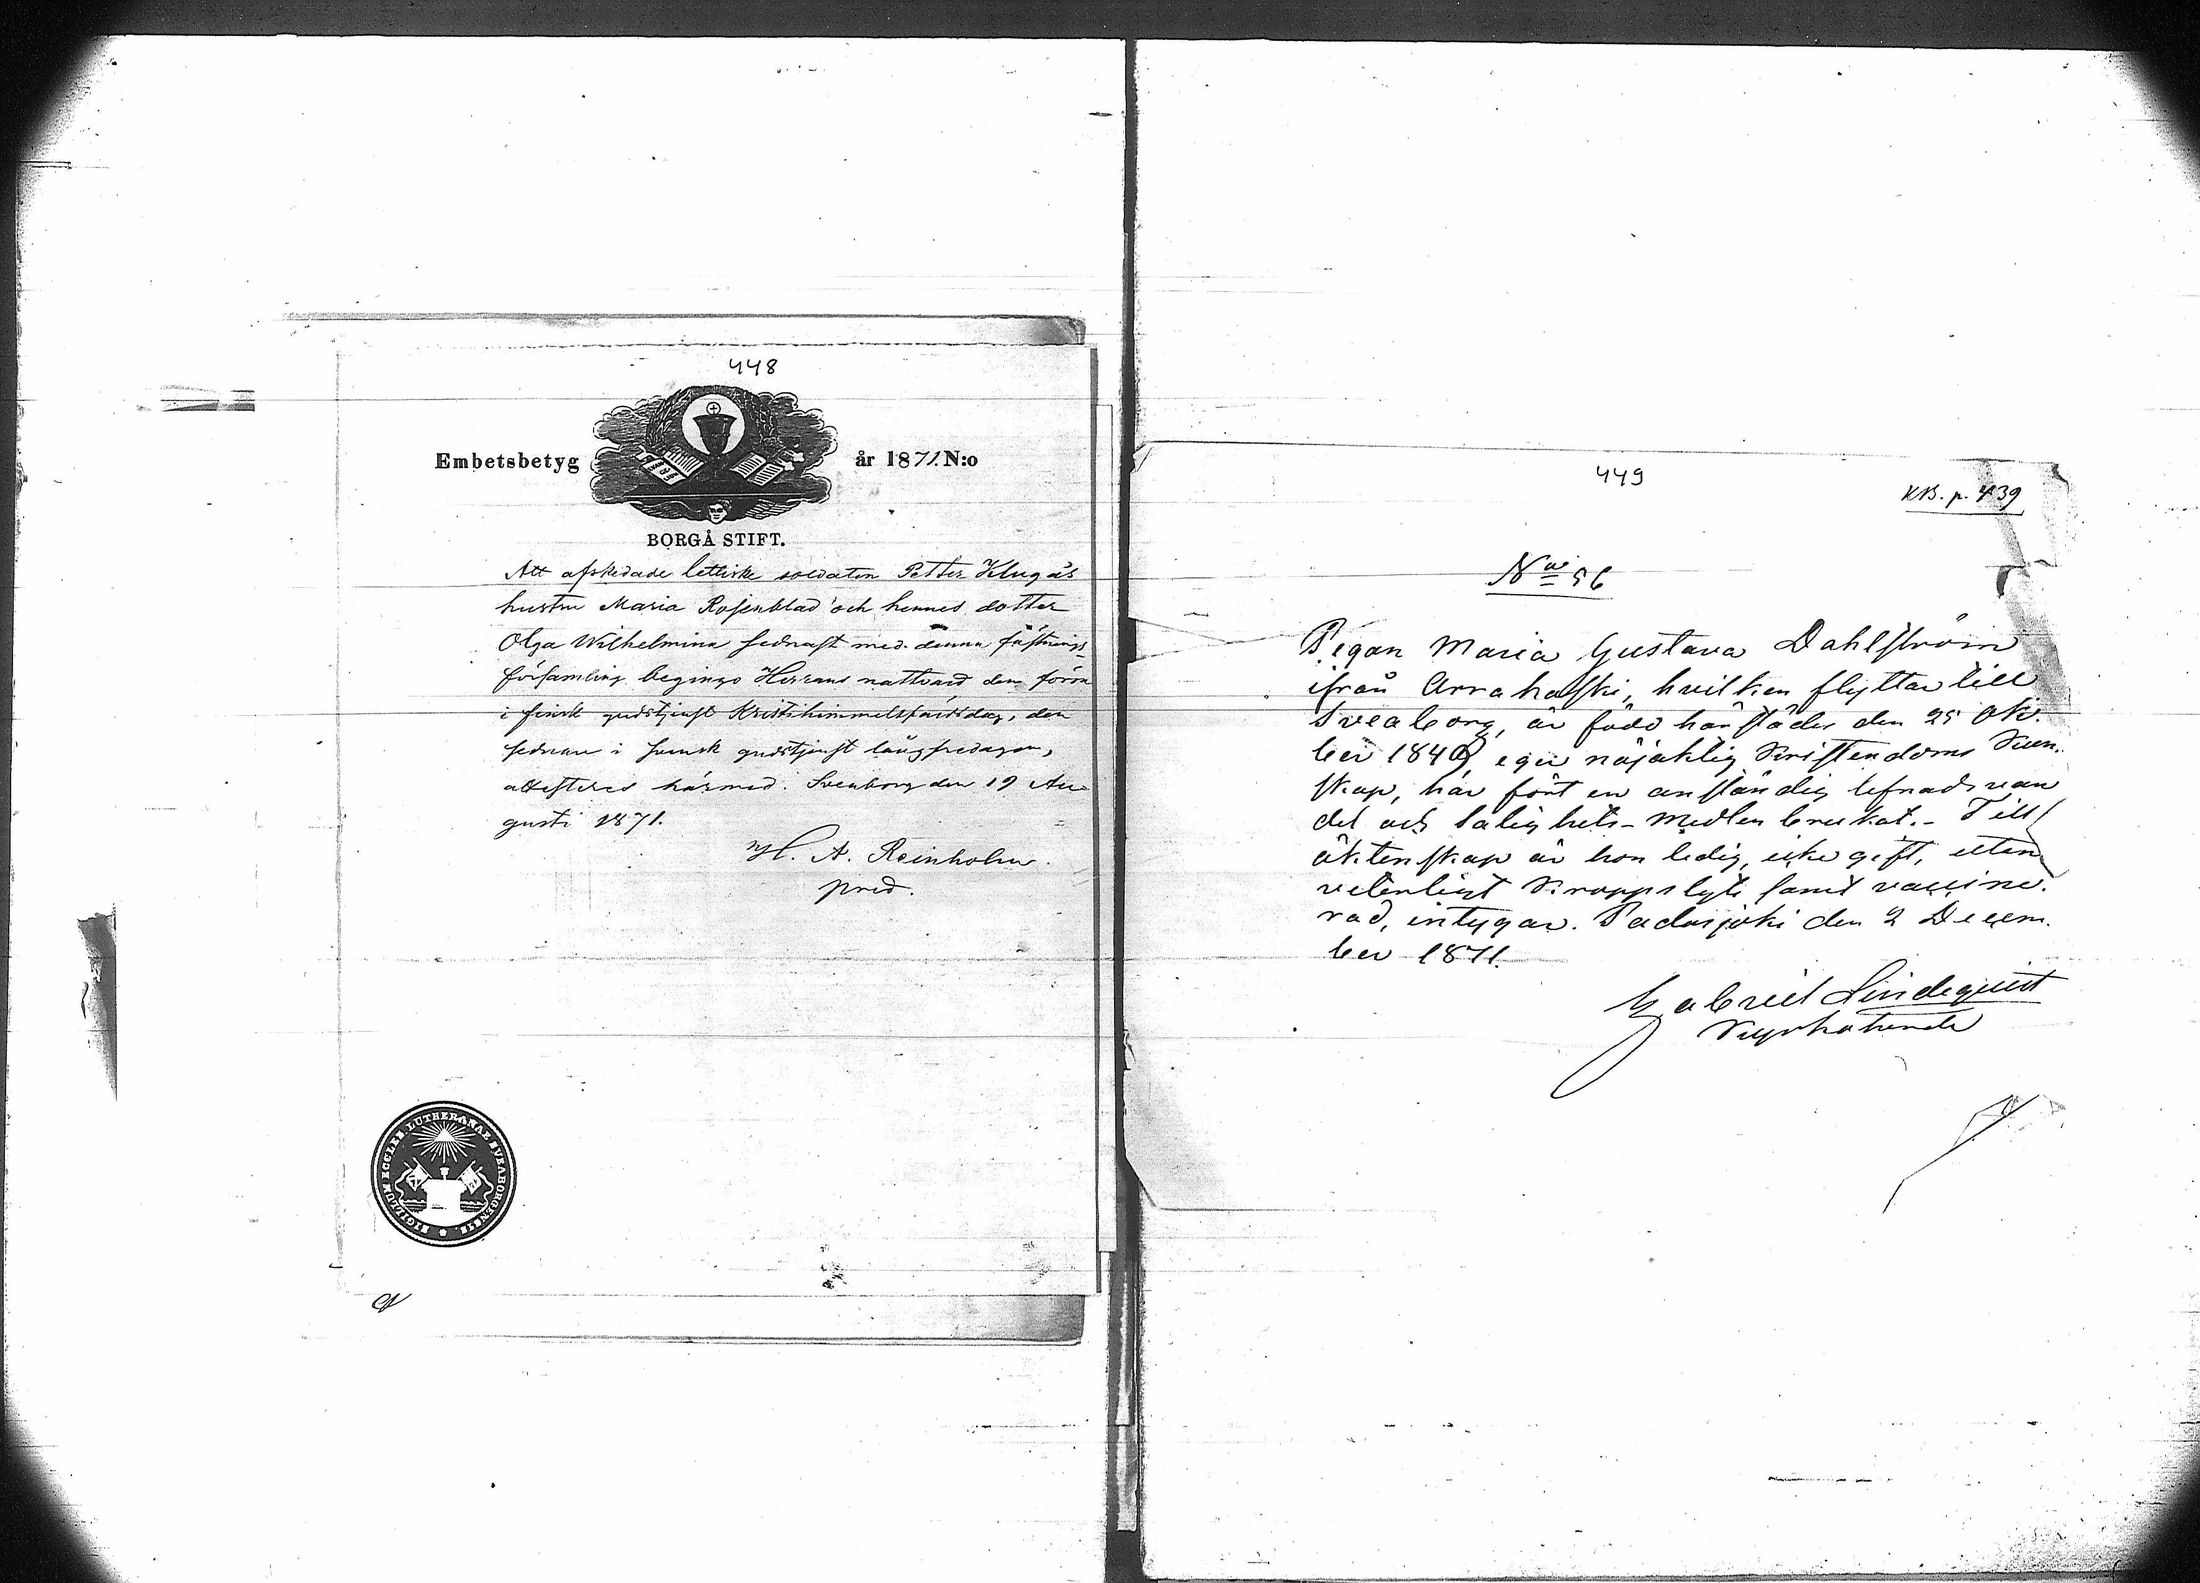 448
Embetsbetyg år 1871. N:o
BORGÅ STIFT.
Att afskedade lettiske soldaten Petter Klugas
hustru Maria Rosenblad och hennes dotter
Olga Wilhelmina sednast med denna fästnings
församling begingo Herrans nattvard den förra
i finsk gudstjenst Kristihimmelsfärdsdag, den
sednare i svensk gudstjenst långfredagen,
attesteras härmed. Sveaborg den 19 Au-
gusti 1871.
H. A. Reinholm.
pred.
SIGILLUM ECCLES. LUTHERANAE SVEABORGENSIS.
449
KB. p. 439
No 56
Pigan Maria Gustava Dahlström
ifrån Arrakoski, hvilken flyttar till
Sveaborg, är född härstädes den 25 Ok.
ber 1840, eger nöjaktig Kristendoms Kun.
skap, har fört en anständig lefnadsvan
del och Salighets-medlen brukat. - Till
äktenskap är hon ledig, icke gift, utan
vetterligt Kroppslyte samt vaccine.
rad, intygar. Padasjoki den 2 Decem.
ber 1871.
Gabriel Lindequist
Kyrkoherde